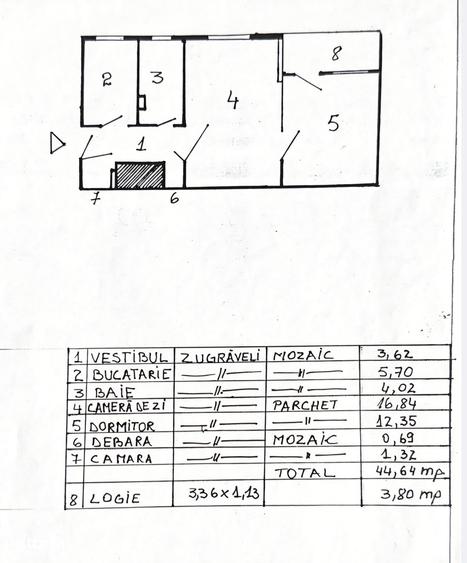 8
2 3
4
5
1
7 6
1 VESTIBUL ZUGRĂVELI MOZAIC 3,62
2 BUCATARIE —〃— —〃— 5,70
3 BAIE —〃— —〃— 4,02
4 CAMERĂ DE ZI —〃— PARCHET 16,84
5 DORMITOR —〃— —〃— 12,35
6 DEBARA —〃— MOZAIC 0,69
7 CAMARA —〃— —〃— 1,32
TOTAL 44,64 mp
8 LOGIE 3,36 x 1,13 3,80 mp